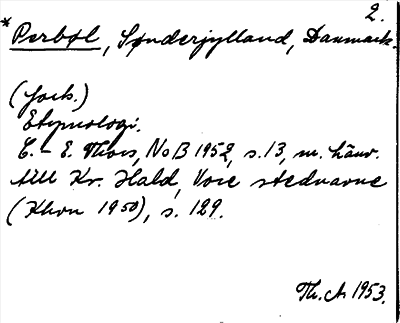 2.
*Perbøl, Sønderjylland, Danmark.
(fork.)
Etymologi.
C.-E. Thors, NoB 1952, s. 13, m. hänv.
till Kr. Hald, Vore stednavne
(Khvn 1950), s. 129.
Th. A 1953.